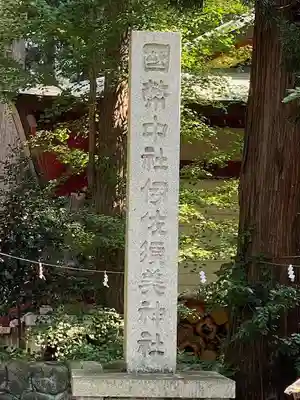 國幣中社伊佐須美神社